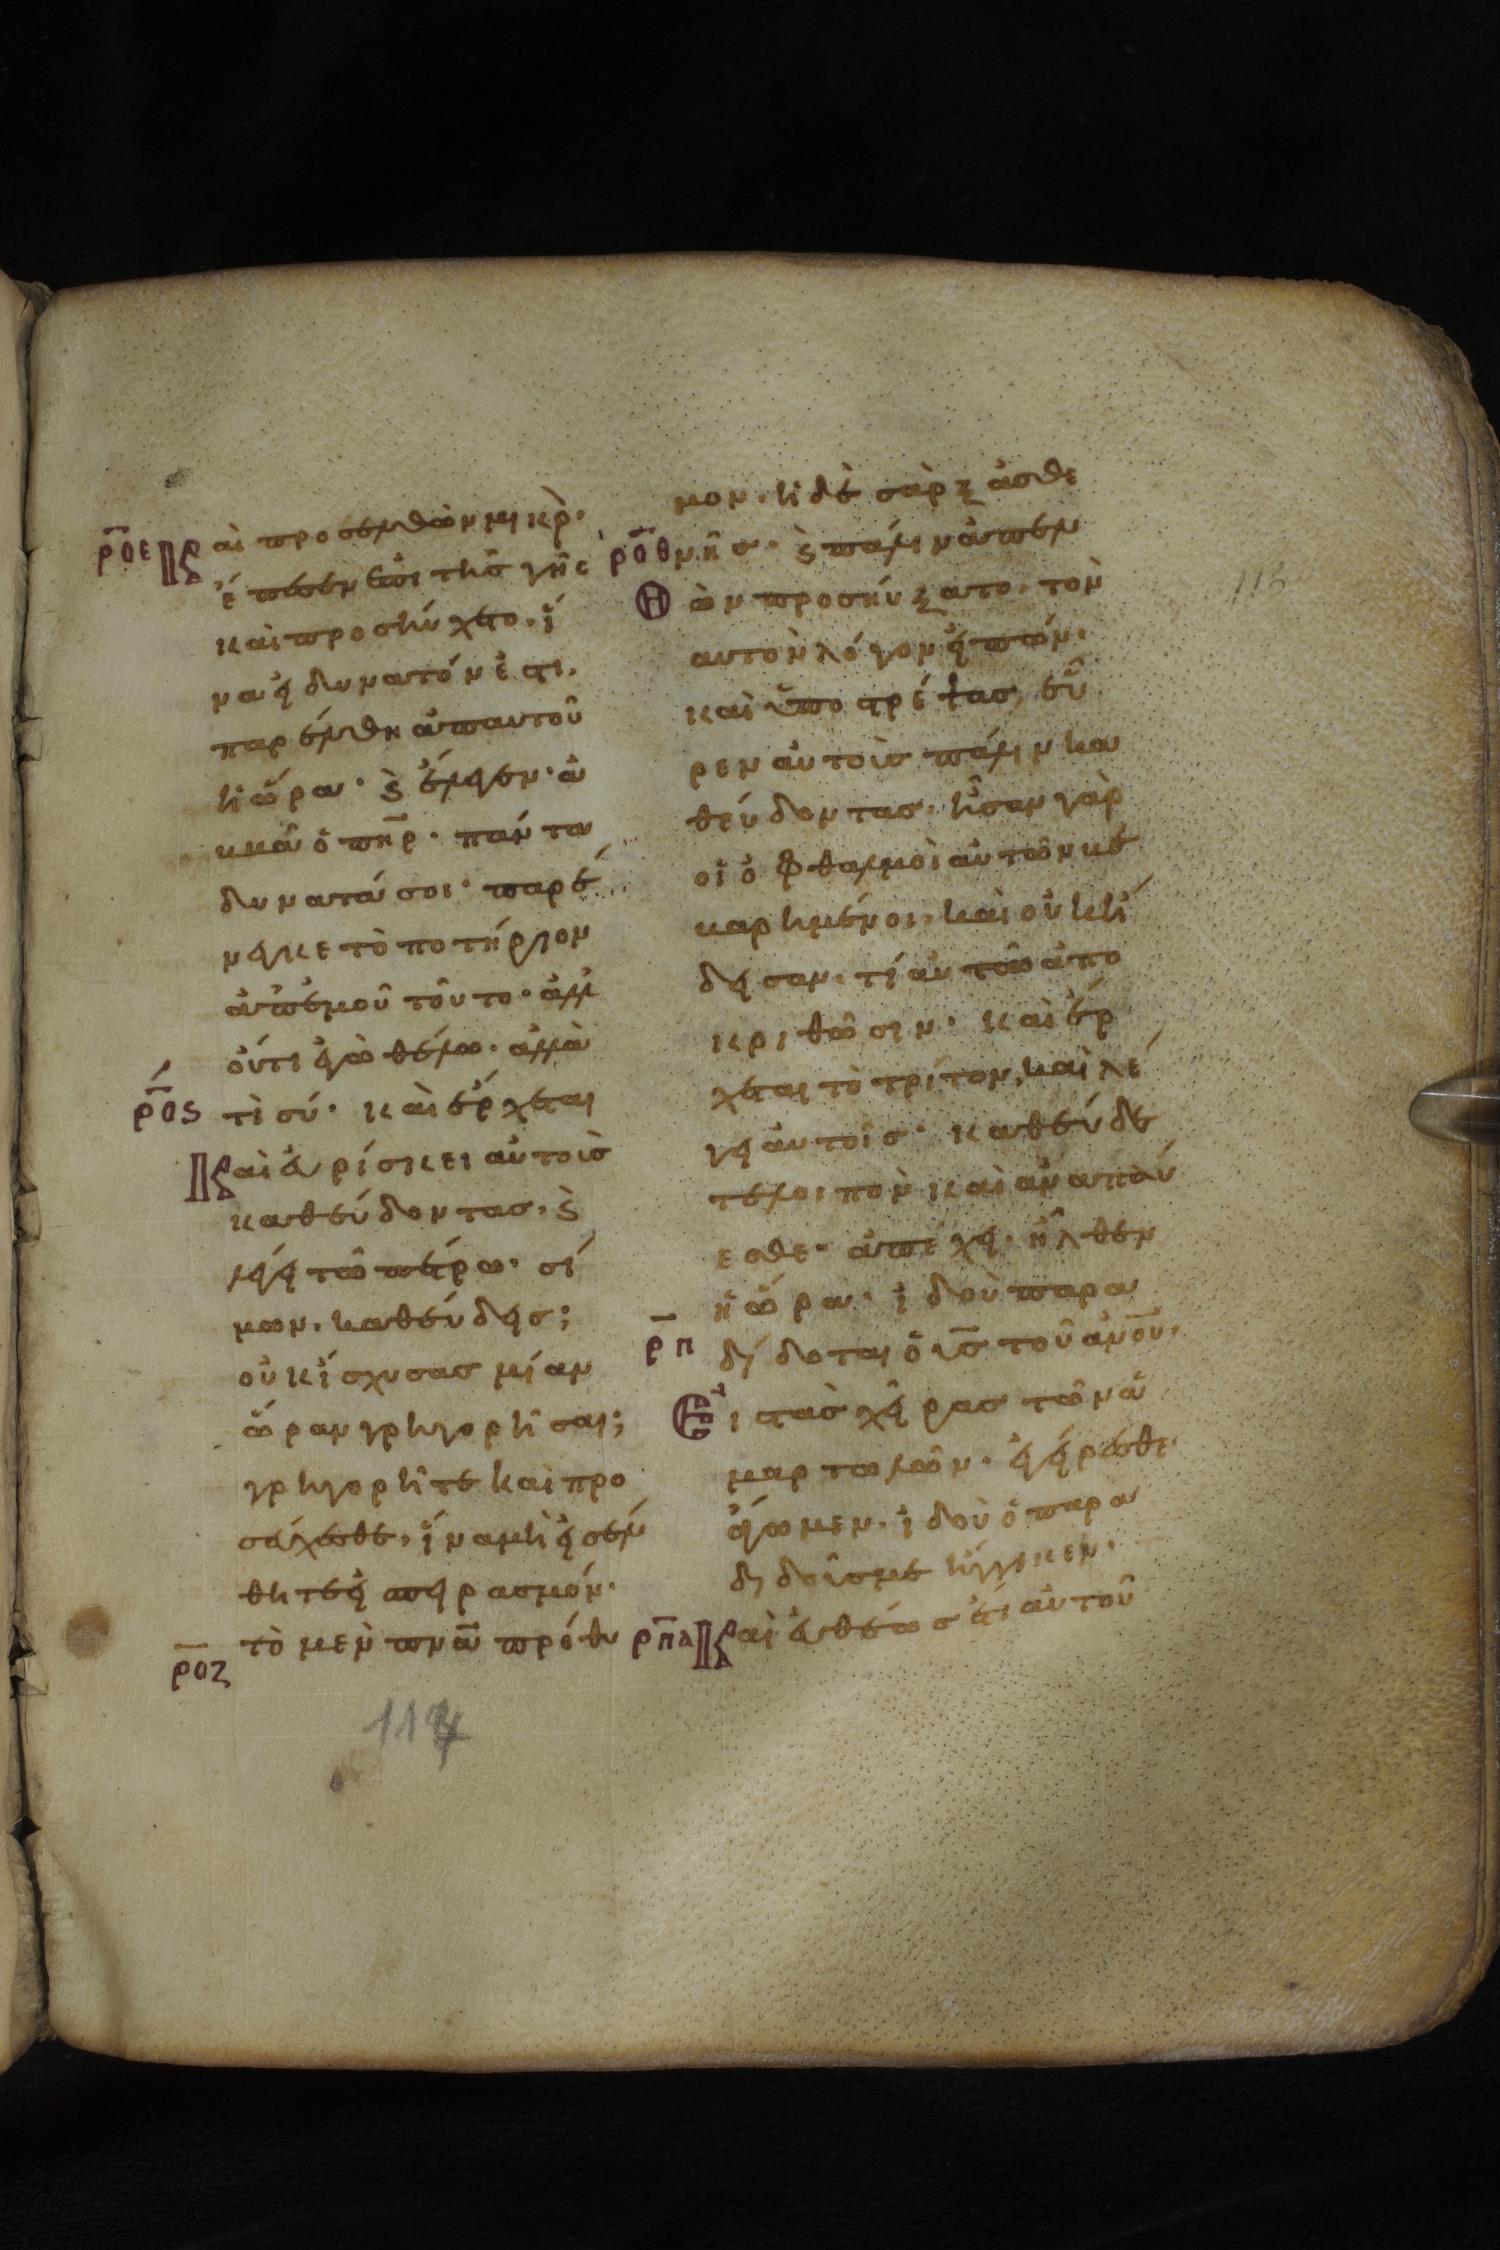 ρο̅ε
Καὶ προσελθὼν μικρὸ·
ἔπεσεν ἐπὶ τῆσ γῆς
καὶ προσηύχετο· ἵ
να εἰ δυνατόν ἐστι·
παρέλθη ἀπαυτοῦ
ἡ ὥρα· ϗ ἔλεγεν· ἀ
ββᾶ ὁ πη̅ρ· πάντα
δυνατά σοι· παρέ
νεγκε τὸ ποτήριον
ἀπ᾽ἐμοῦ τοῦτο· ἀλλ᾽
οὔτι ἐγὼ θέλω· ἀλλὰ
ρο̅ς
τὶ σύ· καὶ ἔρχεται
Καὶ εὑρίσκει αὐτοὺσ
καθεύδοντασ· ϗ
λέγει τῶ πέτρω· σί
μων· καθεύδεισ;
οὐκ ἴσχυσασ μίαν
ὥραν γρηγορῆσαι;
γρηγορῆτε καὶ προ
σεύχεσθε, ἵνα μὴ εἰσέλ
θητε εἰ πειρασμόν·
τὸ μὲν πν̅α πρόθυ
ρο̅ζ
μον· ἡ δὲ σὰρξ ἀσθε
ρο̅θ
νῆσ· ϗ πάλιν ἀπελ
Θὼν προσηύξατο· τὸν
αυτὸν λόγον εἰπών·
καὶ ὑποστρέψασ, εὗ
ρεν αὐτοὺσ πάλιν κα
θεύδοντασ· ἦσαν γὰρ
οἱ ὀφθαλμοὶ αὐτῶν βε
βαρημένοι, καὶ οὐκ ἤ
δεισαν· τί αὐτῶ ἀπο
κριθῶσιν· καὶ ἔρ
χεται τὸ τρίτον, καὶ λέ
γει αὐτοῖσ· καθεύδε
τε λοιπὸν καὶ ἀναπαύ
εσθε· ἀπέχει· ἦλθεν
ἡ ὥρα· ἰδοὺ παρα
ρ̅π
δίδοται ὁ υ̅σ τοῦ ἀν̅ου·
Εἰστὰσ χεῖρασ τῶν ἁ
μαρτωλῶν· ἐγείρεσθε
ἄγωμεν· ἰδοὺ ὁ παρα
διδούσ με ἤγγικεν·
ρπ̅α
Καὶ εὐθέωσ ἔτι αὐτοῦ
114